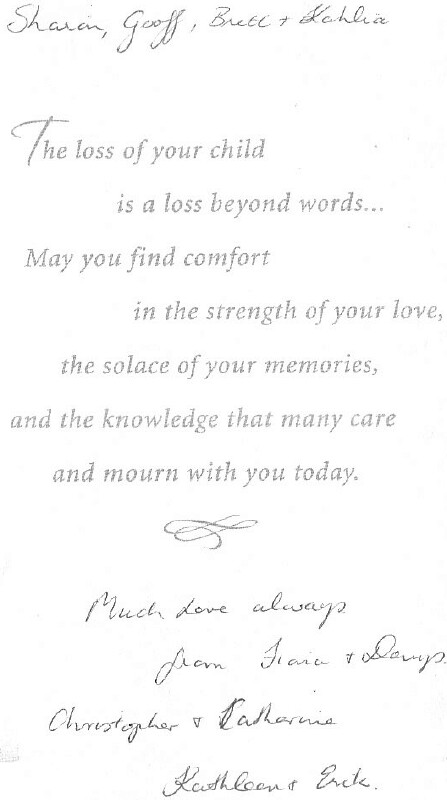 Sharon, Geoff, Brett + Kahlia
The loss of your child
is a loss beyond words...
May you find comfort
in the strength of your love,
the solace of your memories,
and the knowledge that many care
and mourn with you today.
Much Love always
from + Denys
Christopher + Katharine
Kathleen + Erik.